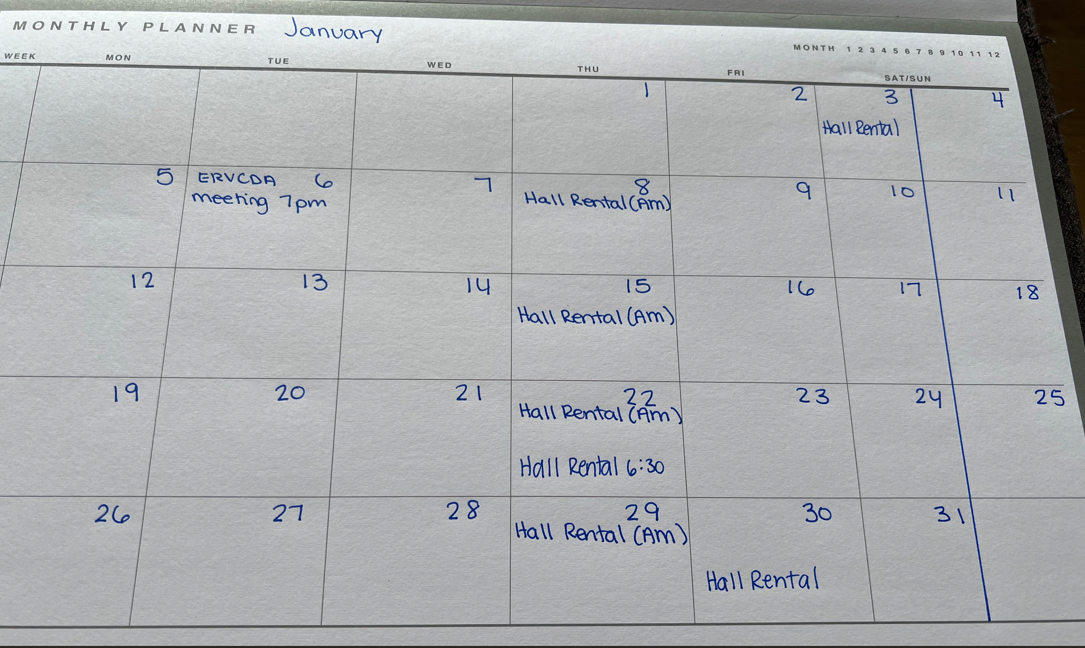 MONTHLY PLANNER January
MONTH 1 2 3 4 5 6 7 8 9 10 11 12
WEEK MON TUE WED THU FRI SAT/SUN
1 2 3 4
Hall Rental
5 ERVCDA 6 7 8 9 10 11
meeting 7pm Hall Rental (Am)
12 13 14 15 16 17 18
Hall Rental (Am)
19 20 21 22 23 24 25
Hall Rental (Am)
Hall Rental 6:30
26 27 28 29 30 31
Hall Rental (Am)
Hall Rental